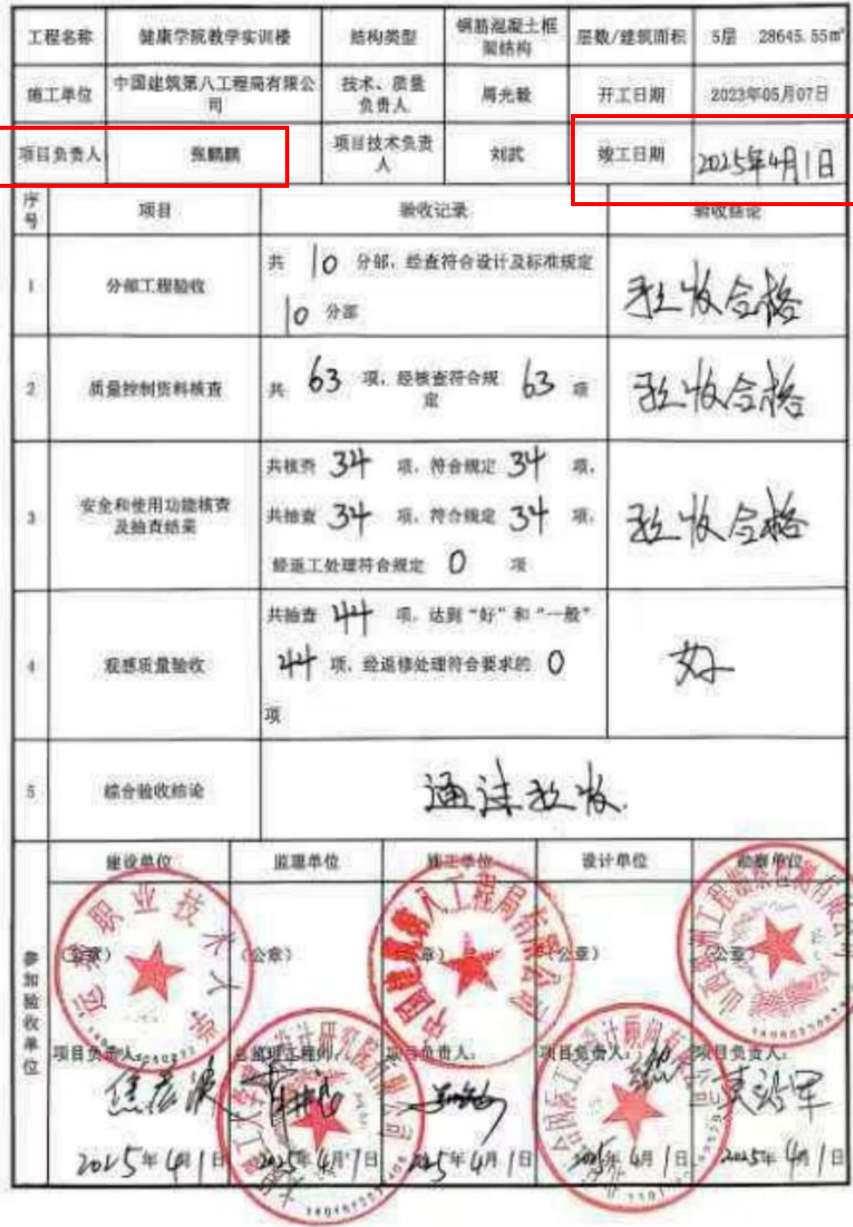 工程名称 健康学院教学实训楼 结构类型 钢筋混凝土框架结构 层数/建筑面积 5层 28645.55㎡
施工单位 中国建筑第八工程局有限公司 技术、质量负责人 周光毅 开工日期 2023年05月07日
项目负责人 张鹏鹏 项目技术负责人 刘武 竣工日期 2025年4月1日
序号 项目 验收记录 验收结论
1 分部工程验收 共 10 分部，经查符合设计及标准规定 验收合格
10 分部
2 质量控制资料核查 共 63 项，经核查符合规定 63 项 验收合格
3 安全和使用功能核查及抽查结果 共核查 34 项，符合规定 34 项，
共抽查 34 项，符合规定 34 项， 验收合格
经返工处理符合规定 0 项
4 观感质量验收 共抽查 44 项，达到“好”和“一般”
44 项，经返修处理符合要求的 0 好
项
5 综合验收结论 通过验收.
参加验收单位
建设单位 监理单位 施工单位 设计单位 勘察单位
（公章） （公章） （公章） （公章） （公章）
运城职业技术大学
中国建筑第八工程局有限公司
项目负责人： 总监理工程师： 项目负责人： 项目负责人： 项目负责人：
2025年4月1日 2025年4月1日 2025年4月1日 2025年4月1日 2025年4月1日